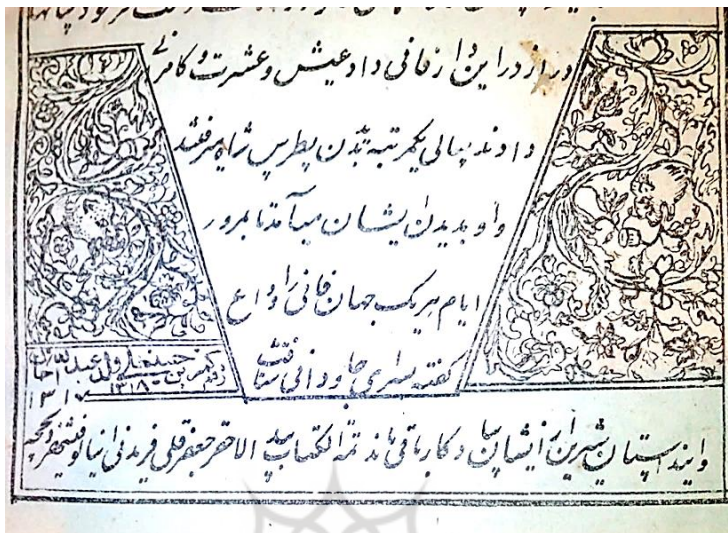 دراز در این دار فانی داد عیش و عشرت و کامرانی
دادند سالی یکمرتبه بدیدن پطرس شاه میرفتند
و او بدیدن ایشان میآمد تا بمرور
ایام هر یک جهان فانی را وداع
گفته بسرای جاودانی شتافتند
عبدالله
۱۳۱۸
۱۳۱۷
و این داستان شیرین از ایشان یادگار باقی ماند تمة الکتاب بید الاحقر جعفر قلی فریدنی